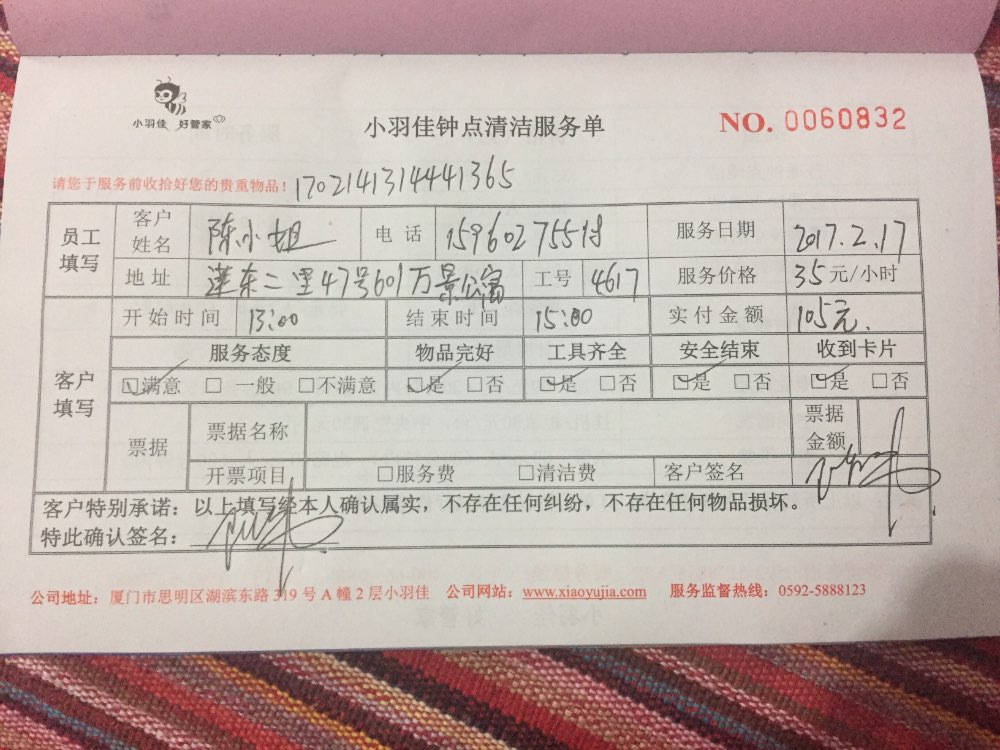 小羽佳 好管家
小羽佳钟点清洁服务单
NO. 0060832
请您于服务前收拾好您的贵重物品！ 1702141314441365
员工填写 客户姓名 陈小姐 电话 服务日期 2017.2.17
地址 莲东二里47号601万景公寓 工号 4617 服务价格 35元/小时
客户填写 开始时间 13:00 结束时间 15:00 实付金额 105元.
服务态度 物品完好 工具齐全 安全结束 收到卡片
☑满意 □ 一般 □不满意 ☑是 □否 ☑是 □否 ☑是 □否 ☑是 □否
票据 票据名称 票据金额
开票项目 □服务费 □清洁费 客户签名
客户特别承诺：以上填写经本人确认属实，不存在任何纠纷，不存在任何物品损坏。
特此确认签名：
公司地址：厦门市思明区湖滨东路 319 号 A 幢 2 层小羽佳 公司网站：www.xiaoyujia.com 服务监督热线：0592-5888123